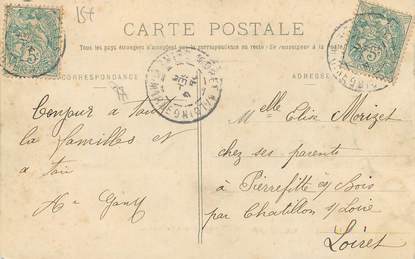 15t
CARTE POSTALE
Tous les pays étrangers n'acceptent pas la correspondance au recto (Se renseigner à la poste)
CORRESPONDANCE
ADRESSE
Bonjour à tout
la familles et
a toi
Melle Elise Morizet
chez ses parents
à Pierrefitte s/ Bois
par Chatillon s/ Loire
Loiret